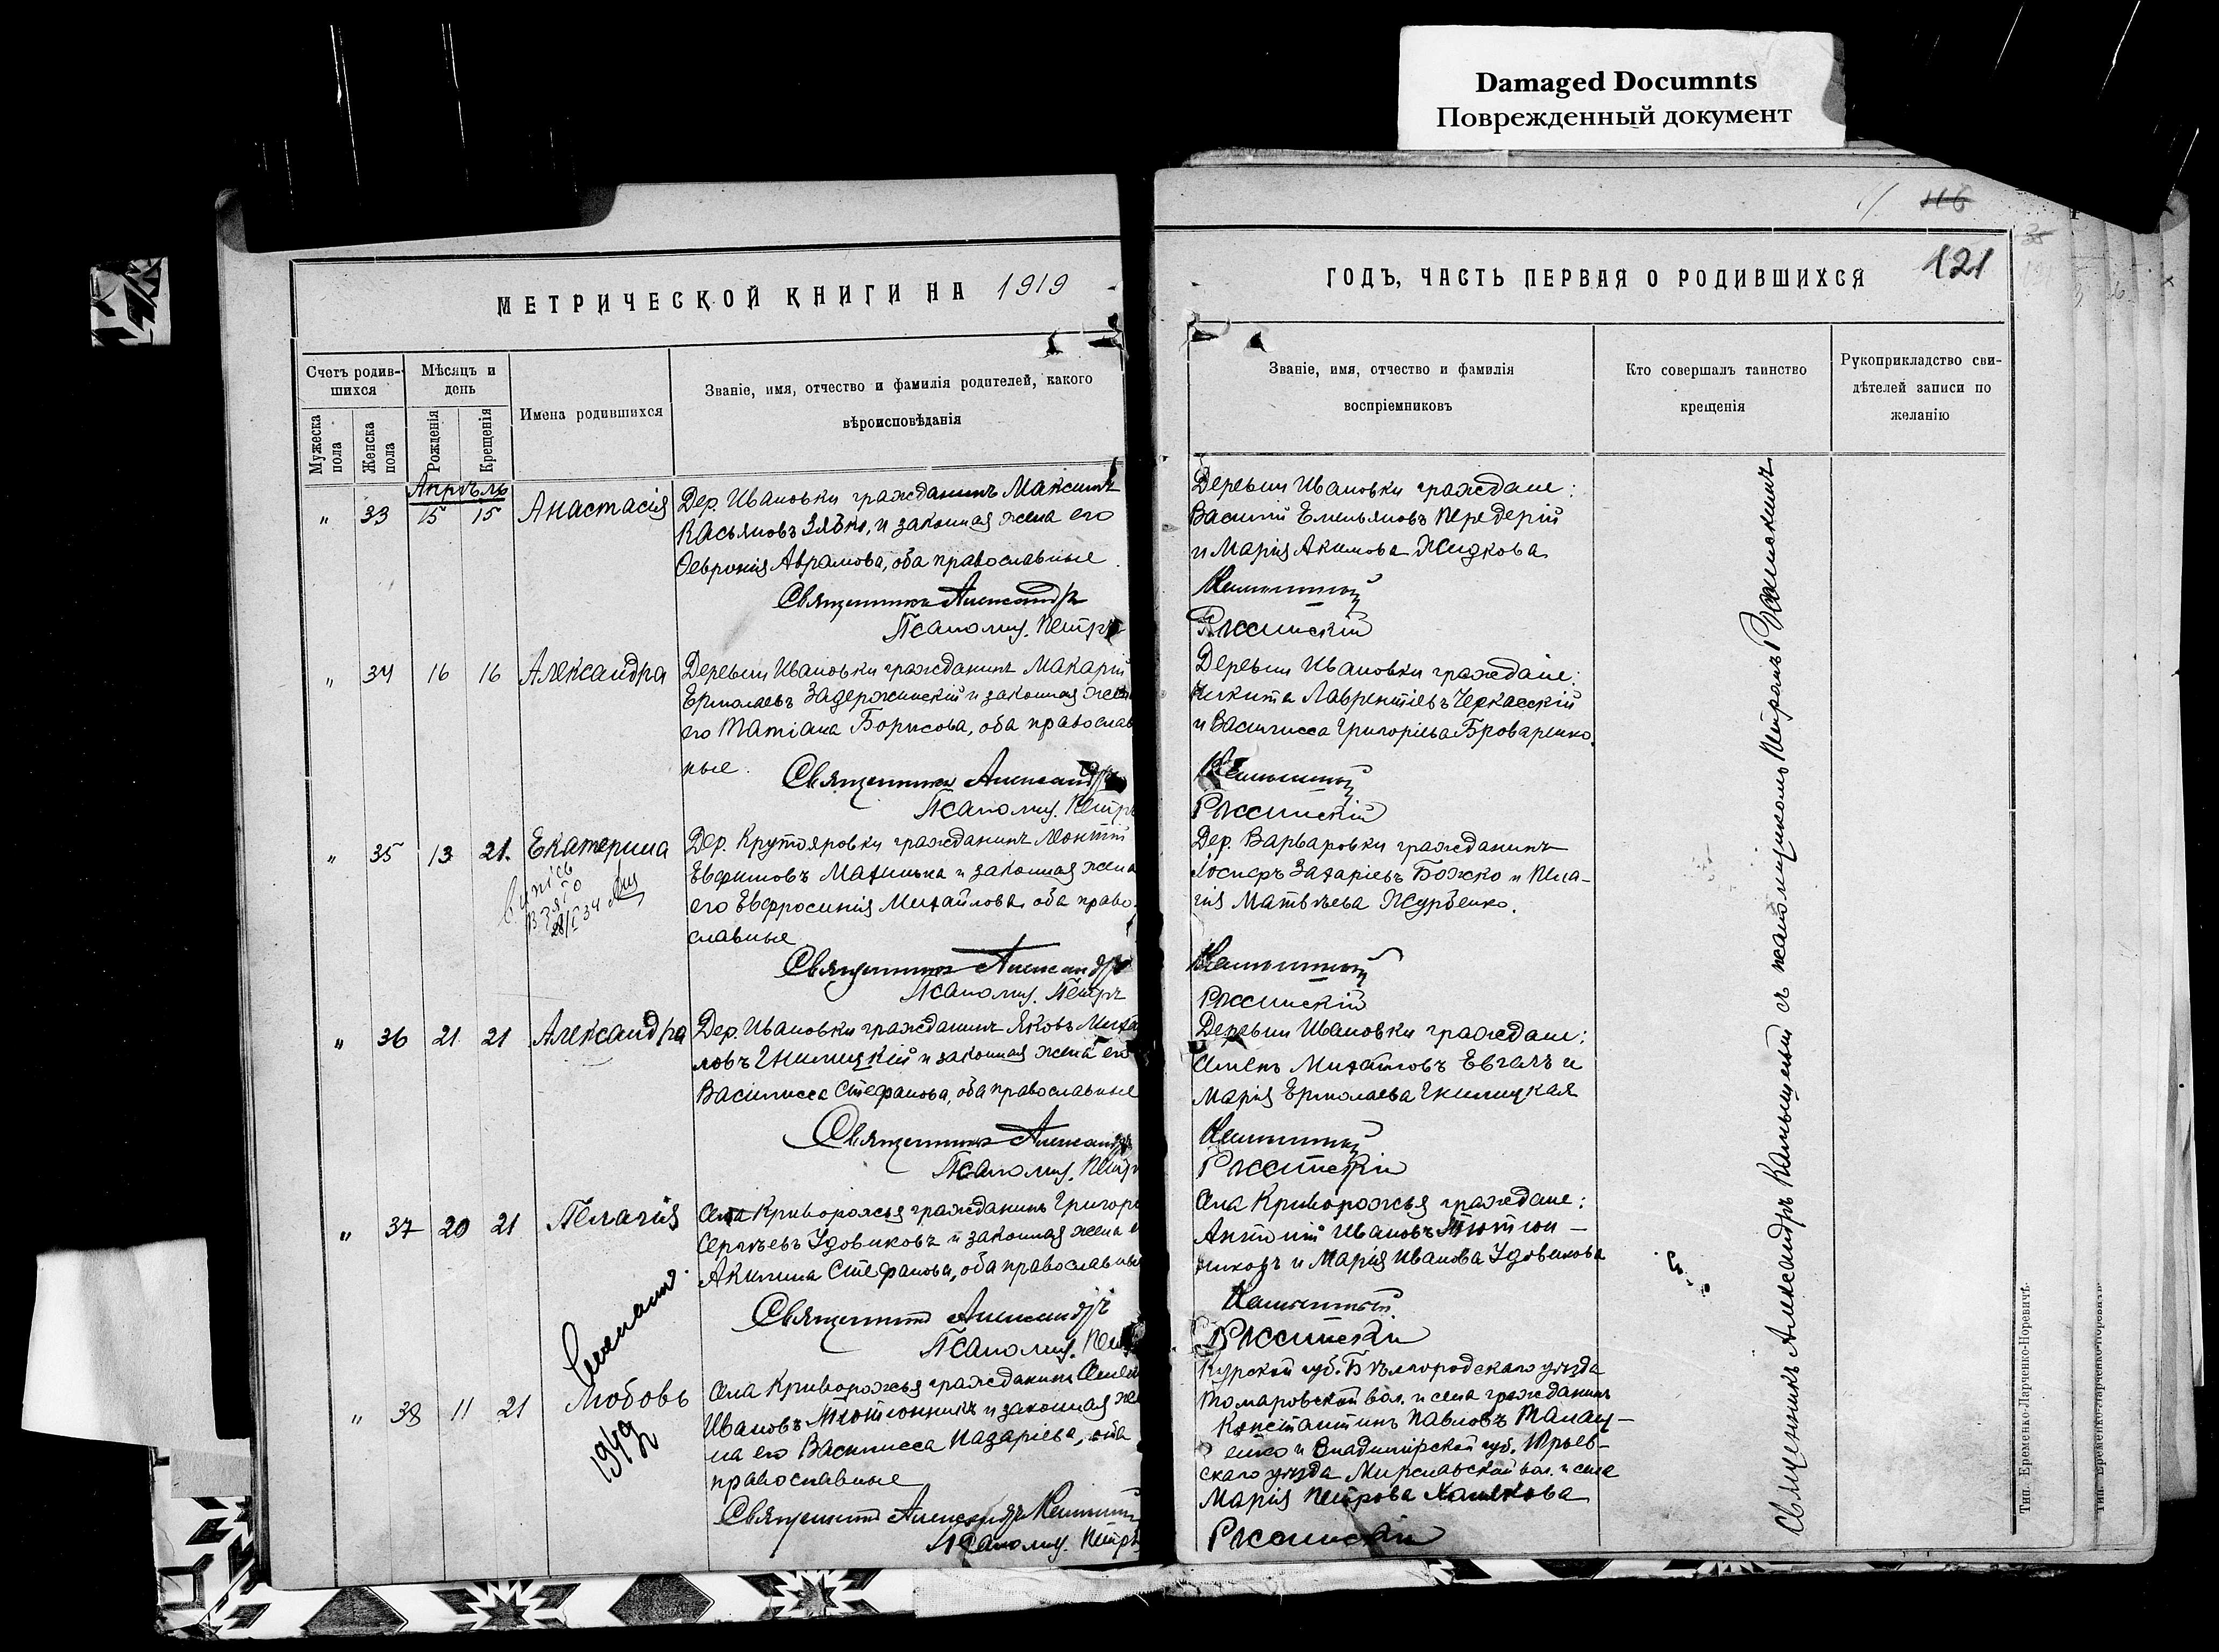 Damaged Documnts
Поврежденный документ
116
121
МЕТРИЧЕСКОЙ КНИГИ НА 1919
ГОДЪ, ЧАСТЬ ПЕРВАЯ О РОДИВШИХСЯ
Счетъ родив-
шихся
Мужеска
пола
Женска
пола
Мѣсяцъ и
день
Рожденія
Крещенія
Имена родившихся
Званіе, имя, отчество и фамилія родителей, какого
вѣроисповѣданія
Званіе, имя, отчество и фамилія
воспріемниковъ
Кто совершалъ таинство
крещенія
Рукоприкладство сви-
дѣтелей записи по
желанію
Апрѣль
" 33 15 15 Анастасія
Дер. Ивановки гражданинъ Максимъ
Касьяновъ Зябко, и законная жена его
Ѳевронія Аврамова, оба православные
Священникъ Александръ
Псаломщ. Петръ
Деревни Ивановки граждане:
Василій Емельяновъ Передерій
и Марія Акимова Жидкова
" 34 16 16 Александра
Деревни Ивановки гражданинъ Макарій
Ермолаевъ Задержинскій и законная жена
его Татіана Борисова, оба православ
ные.
Священникъ Александръ
Псаломщ. Петръ
Деревни Ивановки граждане:
Никита Лаврентіевъ Черкасскій
и Василисса Григоріева Броваренко.
" 35 13 21. Екатерина
28/I 34
Дер. Крутояровки гражданинъ Леонтій
Евфимовъ Махинька и законная жена
его Евфросинія Михайлова, оба право-
славные
Священникъ Александръ
Псаломщ. Петръ
Дер. Варваровки гражданинъ
Іосифъ Захаріевъ Божко и Пела-
гія Матвѣева Журбенко.
" 36 21 21 Александра
Дер. Ивановки гражданинъ Яковъ Михай
ловъ Гнилицкій и законная жена его
Василисса Стефанова, оба православные
Священникъ Александръ
Псаломщ. Петръ
Деревни Ивановки граждане:
Михайловъ и
Марія Ермолаева Гнилицкая
" 37 20 21 Пелагія
Села Криворожья гражданинъ Григорі
Сергѣевъ Удовиковъ и законная жена е
Акилина Стефанова, оба православные
Священникъ Александръ
Псаломщ. Петръ
Села Криворожья граждане:
Антоній Ивановъ Тютюн-
никовъ и Марія Иванова Удовикова
" 38 11 21 Любовь
1949 г
Села Криворожья гражданинъ
Ивановъ Тютюнникъ и законная же
на его Василисса Назаріева, оба
православные
Священникъ Александръ
Псаломщ. Петръ
Курской губ. Бѣлгородскаго уѣзда
Томаровской вол. и села гражданинъ
Константинъ Павловъ
и Владимірской губ. Юрьев-
скаго уѣзда Мирславской вол. и села
Марія Петрова
Священникъ Александръ съ псаломщикомъ Петромъ
Тип. Еременко-Парченко-Норевичъ.